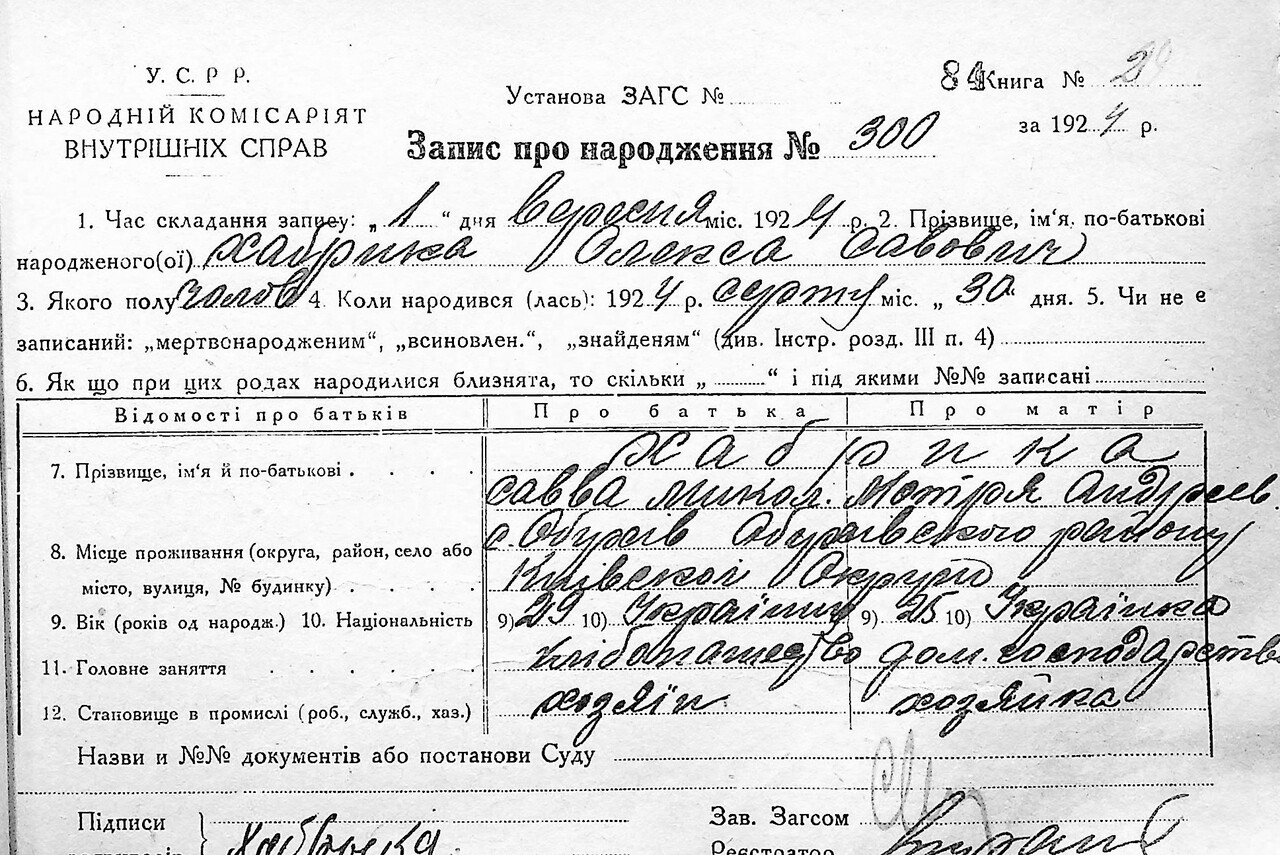 У. С. Р Р.
НАРОДНІЙ КОМІСАРІЯТ
ВНУТРІШНІХ СПРАВ
Установа ЗАГС №
84 Книга №
за 1924 р.
Запис про народження № 300
1. Час складання запису: „1“ дня вересня міс. 1924 р. 2. Прізвище, ім'я. по-батькові
народженого(ої) Хабрика Олекса Савович
3. Якого полу чолов 4. Коли народився (лась): 1924 р. серпну міс. „30“ дня. 5. Чи не є
записаний: „мертвонародженим“, „всиновлен.“, „знайденям“ (див. Інстр. розд. III п. 4)
6. Як що при цих родах народилися близнята, то скільки „ “ і під якими №№ записані
Відомості про батьків Про батька Про матір
7. Прізвище, ім'я й по-батькові . . . . Хабрика
Савва Микол. Мотря Андреев.
8. Місце проживання (округа, район, село або с. Обухів Обухівського району
місто, вулиця, № будинку) . . . . Київскої Округи
9. Вік (років од народж.) 10. Національність 9) 29 10) Українец 9) 25 10) Українка
11. Головне заняття . . . . . хлібопашество дом. господарство
12. Становище в промислі (роб., служб., хаз.) хозяїн хозяйка
Назви и №№ документів або постанови Суду
Підписи
Зав. Загсом
Хабрика
Реєстратор